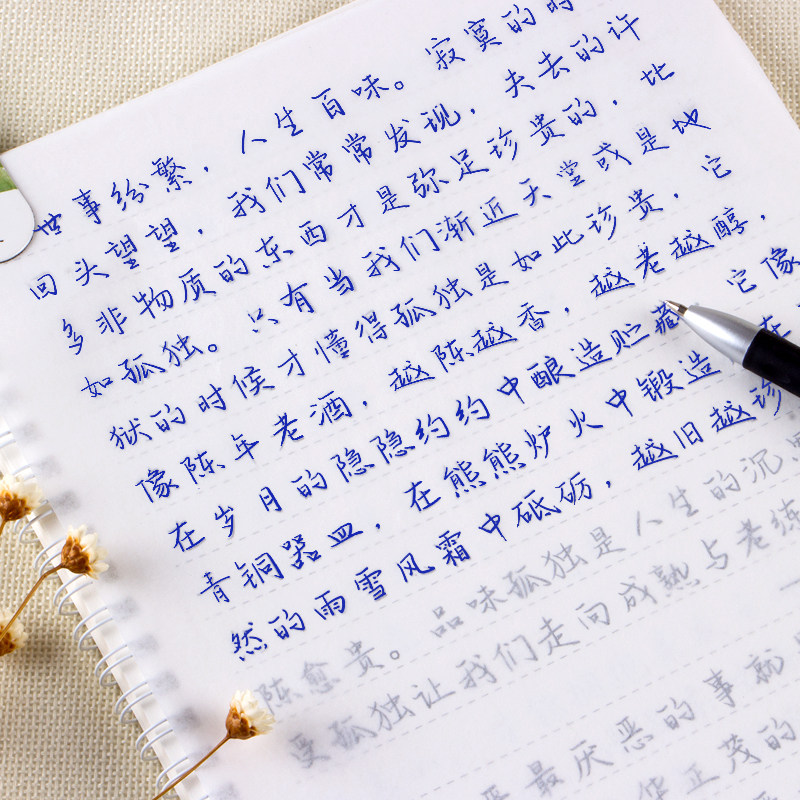 世事纷繁，人生百味。寂寞的时
回头望望，我们常常发现，失去的许
多非物质的东西才是弥足珍贵的，比
如孤独。只有当我们渐近天堂或是地
狱的时候才懂得孤独是如此珍贵，它
像陈年老酒，越陈越香，越老越醇，
在岁月的隐隐约约中酿造贮藏 它像
青铜器皿，在熊熊炉火中锻造 在
然的雨雪风霜中砥砺，越旧越珍
陈愈贵。品味孤独是人生的沉思
受孤独让我们走向成熟与老练
最厌恶的事就
华正茂的